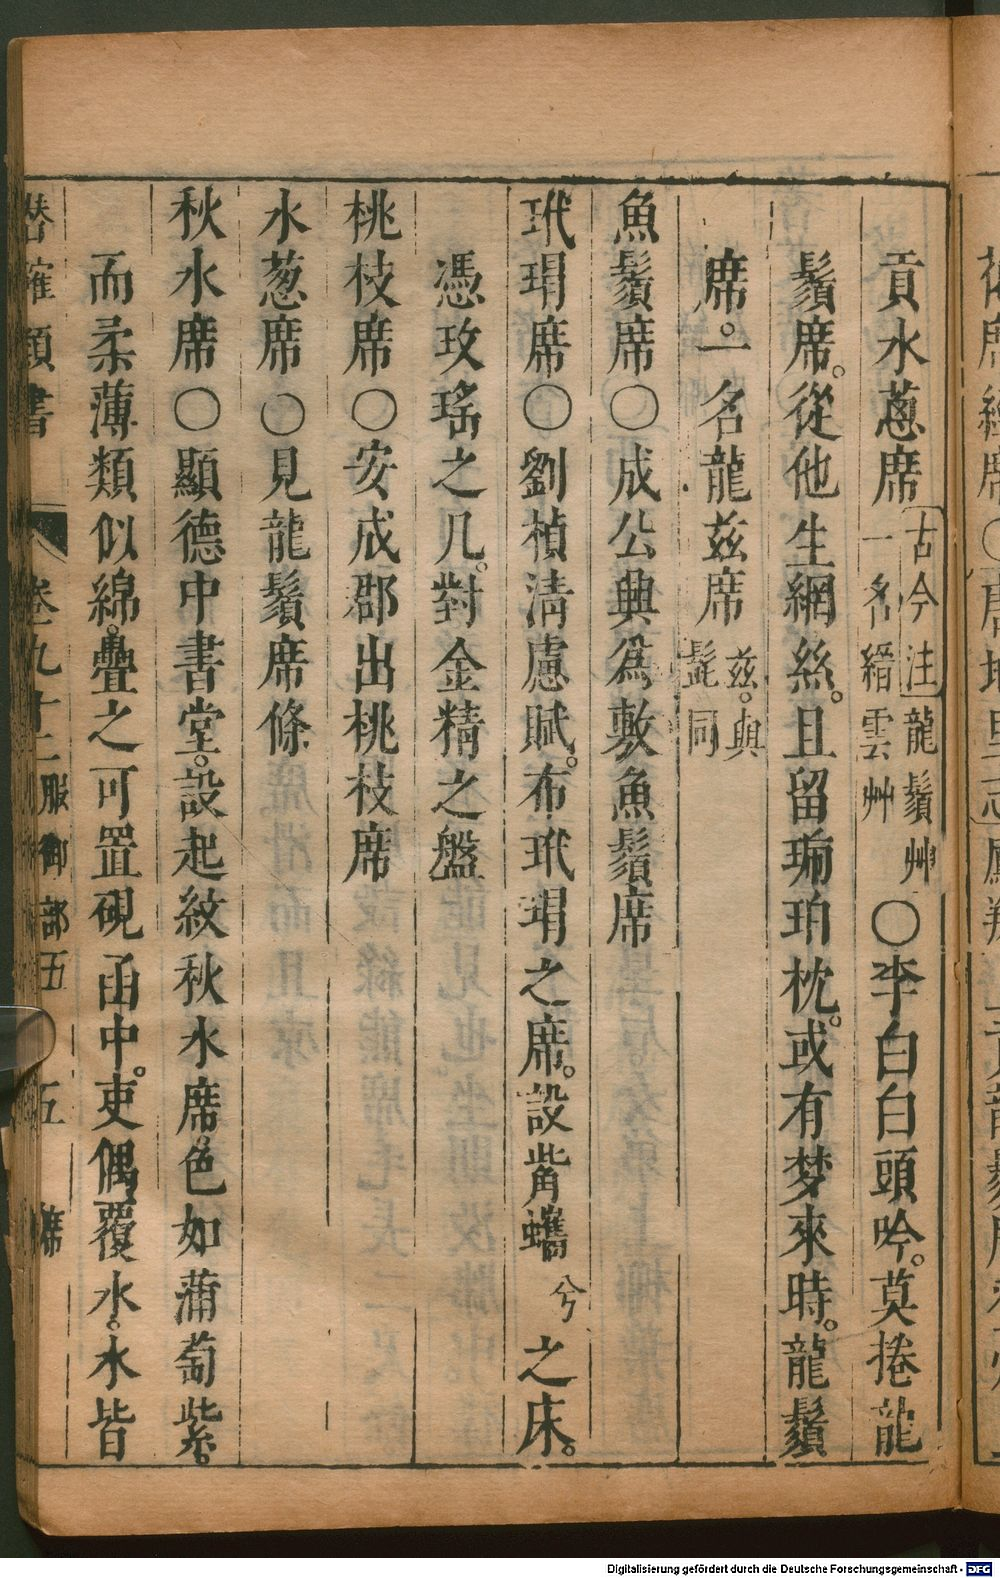 貢水蔥席古今注龍鬚艸一名縉雲艸〇李白白頭吟。莫捲龍
鬚席。從他生網絲。且留琥珀枕。或有梦來時。龍鬚
席。一名龍兹席兹。與髭同
魚鬚席〇成公興為敷魚鬚席
玳瑁席〇劉楨清慮賦。布玳瑁之席。設觜蠵兮之床。
憑玫瑤之几。對金精之盤
桃枝席〇安成郡出桃枝席
水葱席〇見龍鬚席條
秋水席〇顯德中書堂。設起紋秋水席。色如蒲萄紫。
而柔薄類似綿。疊之可置硯函中。吏偶覆水。水皆
潛確類書 卷九十二 服御部五 五 席
Digitalisierung gefördert durch die Deutsche Forschungsgemeinschaft - DFG